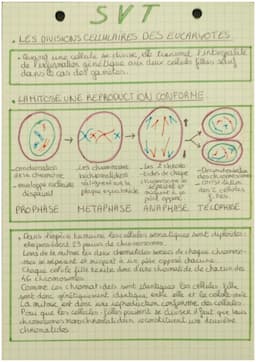 SVT
• LES DIVISIONS CELLULAIRES DES EUCARYOTES
• Quand une cellule se divise, elle transmet l'intégralité
de l'information génétique aux deux cellules filles sauf
dans le cas des gamètes.
• LA MITOSE UNE REPRODUCTION CONFORME
- condensation
de la chromatine
- enveloppe nucléaire
disparait
PROPHASE
- Les chromosomes
bichromatidiens
s'alignent sur la
plaque équatoriale
METAPHASE
- Les 2 chromatides de chaque
chromosome se
séparent et
migrent à un
pôle opposé
ANAPHASE
- Décondensation
des chromosomes
- individualisation
des 2 cellules
filles.
TELOPHASE
• Dans l'espèce humaine les cellules somatiques sont diploïdes:
elles possèdent 23 paires de chromosomes.
Lors de la mitose les deux chromatides soeurs de chaque chromosome
se séparent et migrent à un pôle opposé chacune.
Chaque cellule fille hérite donc d'une chromatide de chacun des
46 chromosomes.
Comme les chromatides sont identiques les cellules filles
sont donc génétiquement identiques entre elle et la cellule mère
La mitose est donc une reproduction conforme des cellules.
Pour que les cellules-filles puissent se diviser il faut que leurs
chromosomes monochromatidiens reconstituent une deuxième
chromatides